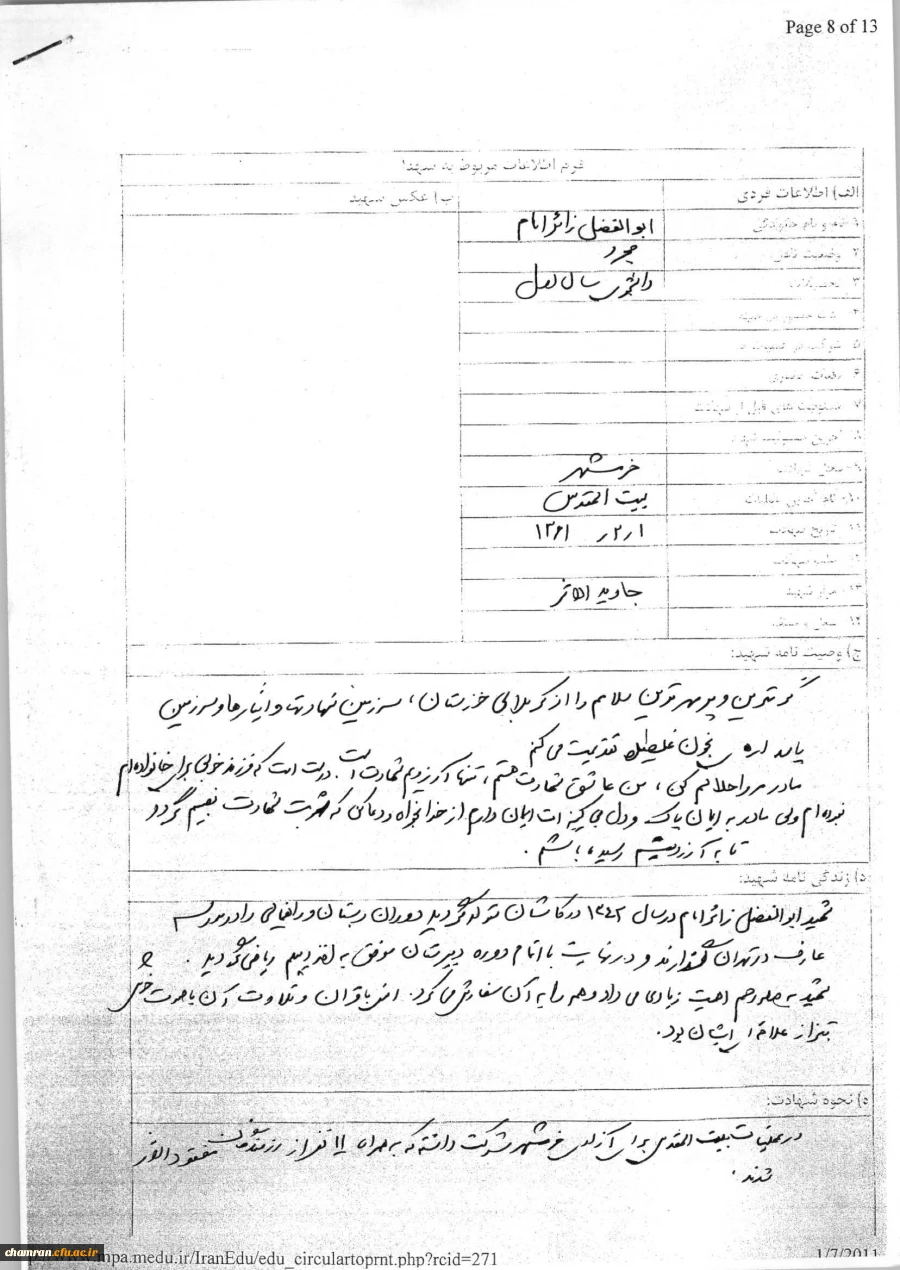 Page 8 of 13
فرم اطلاعات مربوط به شهدا
الف) اطلاعات فردی
ب) عکس شهید
۱- نام و نام خانوادگی
ابوالفضل زائر امام
۲- وضعیت تاهل
مجرد
۳- تحصیلات
دانشجوی سال اول
۴-
۵- شرکت در عملیات
۶- دفعات
۷- مسئولیت های قبل از شهادت
۸- آخرین مسئولیت
۹- محل شهادت
خرمشهر
بیت المقدس
۱۱- تاریخ شهادت
۱ر۲ر ۱۳۶۱
۱۳- مزار شهید
جاوید الاثر
۱۴- محل
ج) وصیت نامه شهید:
گرمترین و پرمهرترین سلام را از کربلای خوزستان، سرزمین شهادتها و ایثارها و سرزمین
بخون غلطیده تقدیمت می کنم
مادر مرا حلالم کن، من عاشق شهادت هستم، تنها آرزویم شهادت است. درست است که فرزند خوبی برای خانواده ام
نبوده ام ولی مادر به ایمان پاک و دل بی کینه ات ایمان دارم از خدا بخواه و دعا کن که شربت شهادت نصیبم گردد
تا به آرزویم رسیده باشم.
د) زندگی نامه شهید:
شهید ابوالفضل زائر امام در سال ۱۳۴۲ در کاشان متولد گردید دوران دبستان و راهنمایی را در مدرسه
عارف در تهران گذراند و در نهایت با اتمام دوره دبیرستان موفق به اخذ دیپلم ریاضی گردید.
شهید به صله رحم اهمیت زیادی می داد و همه را به آن سفارش می کرد. انس با قرآن و تلاوت آن با صوت خوش
نیز از علاقه ایشان بود.
ه) نحوه شهادت:
در عملیات بیت المقدس برای آزادی خرمشهر شرکت داشته که به همراه ۱۱ نفر از رزمندگان مفقود الاثر
شدند.
chamran.cfu.ac.ir
mpa.medu.ir/IranEdu/edu_circulartoprnt.php?rcid=271
1/7/2011